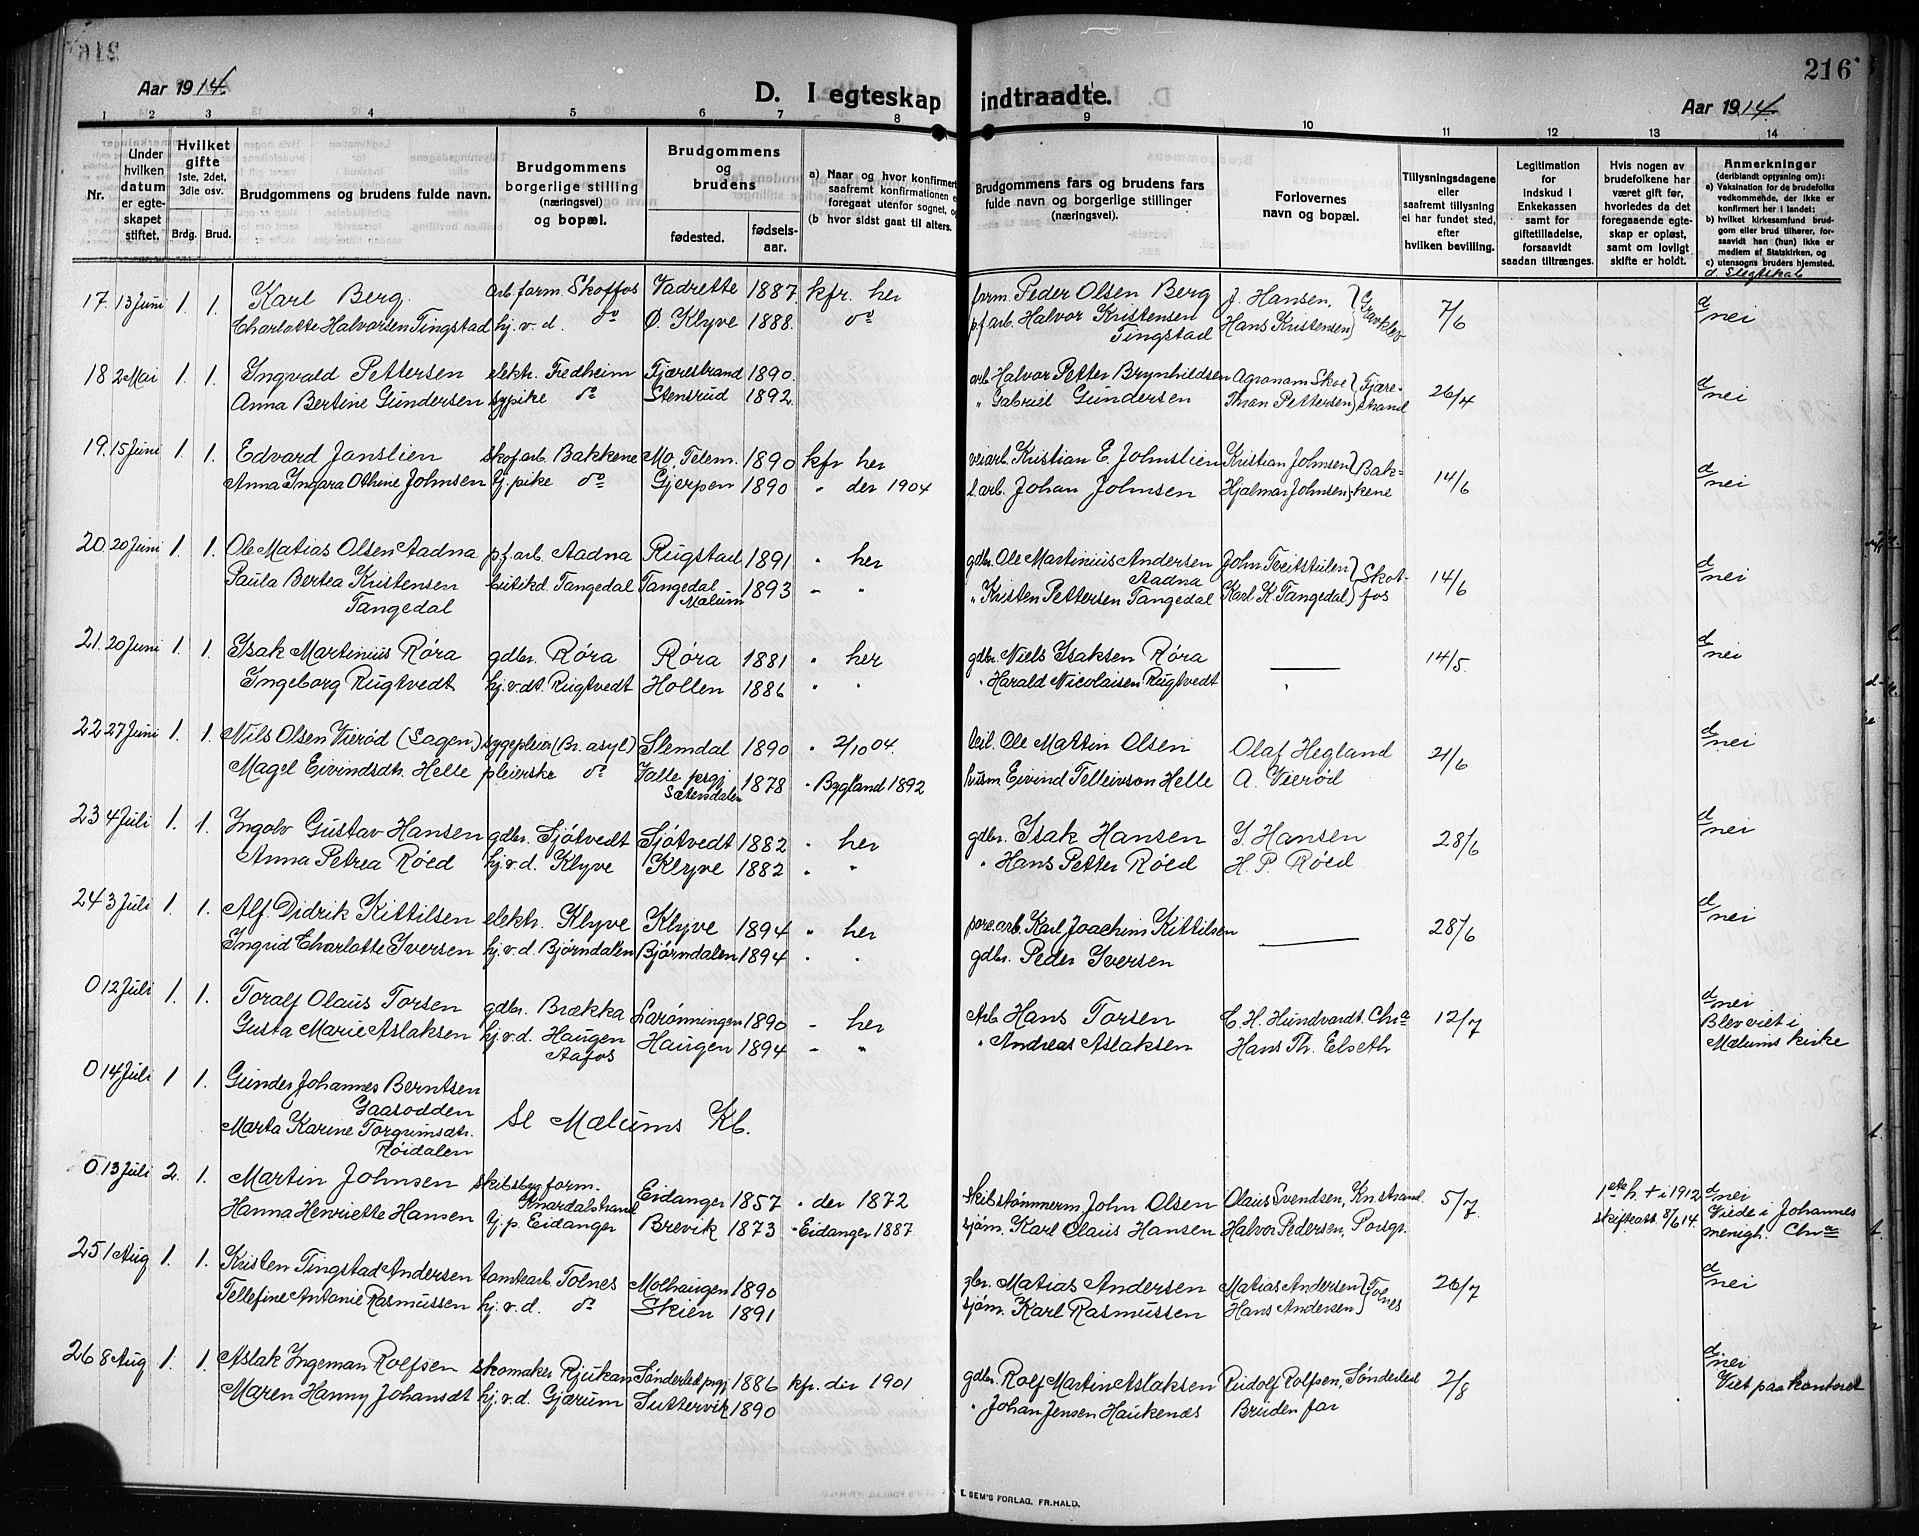 216
Aar 1914.
D. I egteskap indtraadte.
Aar 1914.
1 2 3 4 5 6 7 8 9 10 11 12 13 14
Nr.
Under hvilken datum er egteskapet stiftet.
Hvilket gifte 1ste, 2det, 3die osv.
Brdg. Brud.
Brudgommens og brudens fulde navn.
Brudgommens borgerlige stilling (næringsvei) og bopæl.
Brudgommens og brudens
fødested. fødselsaar.
a) Naar og hvor konfirmert saafremt konfirmationen foregaat utenfor sognet,
(b hvor sidst gaat til alters.
Brudgommens fars og brudens fars fulde navn og borgerlige stillinger (næringsvei).
Forlovernes navn og bopæl.
Tillysningsdagene eller saafremt tillysning ei har fundet sted, efter hvilken bevilling.
Legitimation for indskud i Enkekassen samt for giftetilladelse, forsaavidt saadan tiltrænges.
Hvis nogen av brudefolkene har været gift før, hvorledes da det foregaaende egteskap er opløst, samt om lovligt skifte er holdt.
Anmerkninger (deriblandt opysning om):
a) Vaksination for de brudefolks vedkommende, der ikke er konfirmert her i landet;
b) hvilket kirkesamfund brudgom eller brud tilhører, forsaavidt han (hun) ikke er medlem af Statskirken, og
c) utensogns bruders hjemsted.
d. Slegtskab
17. 13 Juni 1. 1. Karl Berg. arb.form. Skotfos Vadrette 1887. kfr. her form. Peder Olsen Berg J. Hansen, } Gravklev 7/6 d/nei
Charlotte Halvorsen Tingstad hj.v.d. do Ø. Klyve 1888. do pf.arb. Halvor Kristensen Tingstad Hans Kristensen
18 2 Mai 1. 1. Ingvald Pettersen elektr. Fredheim Fjærestrand 1890. arb. Halvor Petter Brynhildsen Agronom Skoe } Fjærestrand 26/4 d/nei
Anna Bertine Gundersen sypike do Stensrud 1892. " Gabriel Gundersen Thom Pettersen
19. 15 Juni 1. 1. Edvard Janslien skofarb. Bakkene Mo, Telem. 1890 kfr her veiarb. Kristian E. Johnslien Kristian Johnsen } Bakkene 14/6 d/nei
Anna Ingara Othine Johnsen tj.pike do Gjerpen 1890 " der 1904 l.arb. Johan Johnsen Hjalmar Johnsen
20. 20 Juni 1. 1. Ole Matias Olsen Aadna pf.arb Aadna Rugstad 1891 " her gdbr. Ole Martinius Andersen Aadna John Tveitstulen } Skotfos 14/6 d/nei
Paula Bertea Kristensen Tangedal butikd. Tangedal Tangedal Mælum 1893 " " " Kristen Pettersen Tangedal Karl K. Tangedal
21. 20 Juni 1. 1. Isak Martinius Røra gdbr. Røra Røra 1881 " her gdbr. Niels Isaksen Røra — 14/5. d/nei
Ingeborg Rugtvedt hj.v.dt. Rugtvedt Hollen 1886 " " " Harald Nicolaisen Rugtvedt "
22. 27 Juni 1. 1. Nils Olsen Vierød (Sagen) sygepleier (Br. asyl) Slemdal 1890 " 2/10 04. Ole Martin Olsen Olaf Hegland 21/6 d/nei
Magel Eivindsdtr. Helle pleierske do Valle prgj Sætersdalen 1878 " Bygland 1892 husm Eivind Telleivson Helle A. Vierød
23 4 Juli 1. 1. Ingolv Gustav Hansen gdbr. Fjøtvedt Fjøtvedt 1882 " her gdbr. Isak Hansen I. Hansen 28/6 d/nei
Anna Petrea Røed hj.v.d. Klyve Klyve 1882 " " " Hans Petter Røed H. P. Røed
24 3 Juli 1. 1. Alf Didrik Kittilsen elektr. Klyve Klyve 1894 " her porc.arb. Karl Joachim Kittilsen — 28/6 d/nei
Ingrid Charlotte Iversen hj.v.d. Bjørndalen Bjørndalen 1894 " " gdbr. Peder Iversen
0 12 Juli 1. 1. Toralf Olaus Torsen gdbr. Brækka Larønningen 1890 " her Arb. Hans Torsen C. H. Hundvardt. Chra 12/7 d/nei
Gusta Marie Aslaksen hj.v.d. Haugen Aafos Haugen 1894 " " " Andreas Aslaksen Hans Th. Elseth Blev viet i Mælums kirke
0 14 Juli 1 1. Gunder Johannes Berntsen Gaasodden
Marta Karine Torgrimsdtr. Røidalen
Se Mælums Kb.
0 13 Juli 2. 1. Martin Johnsen skibsbyg.form. Knardalstrand Eidanger 1857 " der 1872 skibstømmerm. John Olsen Olaus Svendsen, Kn.strand. 5/7 1ste h. + i 1912 d/nei
Hanna Henriette Hansen tj.p. Eidanger Brevik 1873 " Eidanger 1887 sjøm. Karl Olaus Hansen Halvor Pedersen, Porsgr. skifteatt. 8/6 14. Viede i Johannes menigh. Chra
25 1 Aug 1. 1. Kristen Tingstad Andersen tomtearb. Tolnes Molhaugen 1890 gbr. Matias Andersen Matias Andersen } Tolnes 26/7 d/nei
Tellefine Antonie Rasmussen hj.v.d. do Skien 1891 sjøm. Karl Rasmussen Hans Andersen
26 8 Aug 1. 1. Aslak Ingeman Rolfsen skomaker Rjukan Søndeled prgj 1886 kfr. der 1901 gdbr. Rolf Martin Aslaksen Rudolf Rolfsen, Søndeled 2/8 d. nei
Maren Hanny Johansdt hj.v.d. Gjærum Tuttervik 1890 " Johan Jensen Haukenæs Bruden far Viet paa kontoret
E. SEM'S FORLAG, FR.HALD.